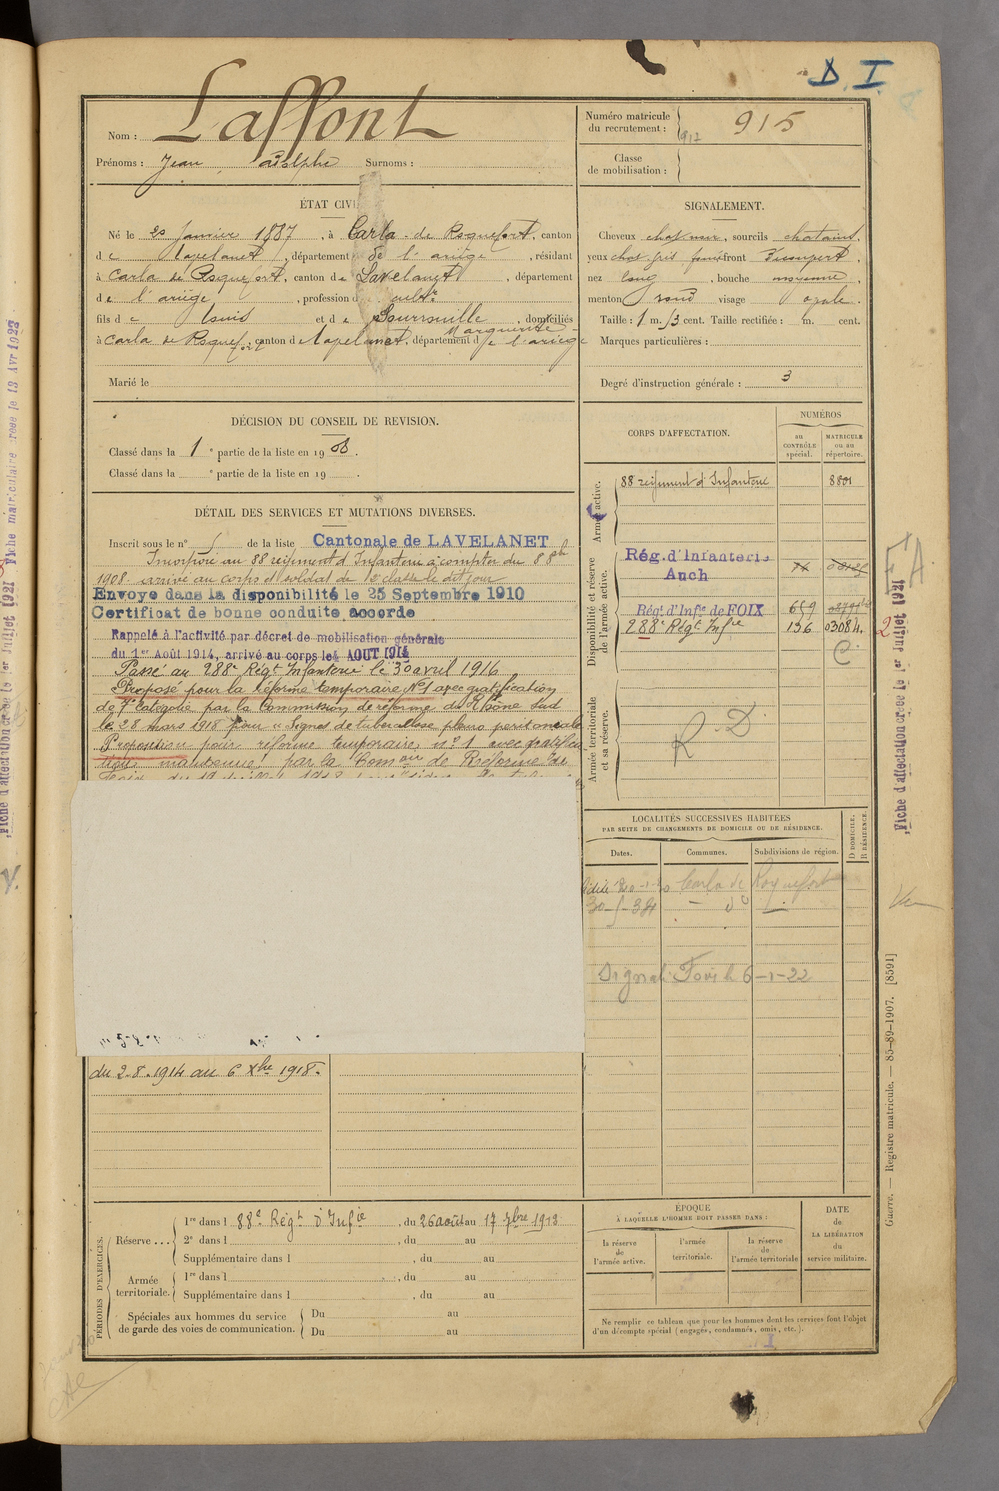 D. I.
Nom : Laffont
Prénoms : Jean Adolphe Surnoms :
Numéro matricule du recrutement : 915
917
Classe de mobilisation :
ÉTAT CIVIL
Né le 20 Janvier 1887, à Carla-de Roquefort, canton
de Lavelanet, département de l'ariège, résidant
à Carla de Roquefort, canton de Lavelanet, département
de l'ariège, profession d cultr
fils de Louis et de Bourrouille Marguerite, domiciliés
à Carla de Roquefort, canton de Lavelanet, département de l'ariège
Marié le
SIGNALEMENT.
Cheveux chat, sourcils chatains,
yeux chat gris foncé front,
nez long, bouche moyenne,
menton rond visage ovale.
Taille : 1 m. 73 cent. Taille rectifiée : m. cent.
Marques particulières :
Degré d'instruction générale : 3
DÉCISION DU CONSEIL DE REVISION.
Classé dans la 1e partie de la liste en 1908.
Classé dans la e partie de la liste en 19 .
DÉTAIL DES SERVICES ET MUTATIONS DIVERSES.
Inscrit sous le n° de la liste Cantonale de LAVELANET
Incorporé au 88 régiment d'Infanterie à compter du 8 8bre
1908. arrivé au corps et soldat de 2e classe le dit jour
Envoyé dans la disponibilité le 25 Septembre 1910
Certificat de bonne conduite accordé
Rappelé à l'activité par décret de mobilisation générale
du 1er Août 1914, arrivé au corps le 4 AOUT 1914
Passé au 288e Régt Infanterie le 30 avril 1916
Proposé pour la réforme temporaire N°1 avec gratification
de 7e catégorie par la Commission de réforme du Rhône Sud
le 28 mars 1918 pour "Signes de tuberculose pleuro péritonéale
Proposition pour réforme temporaire n°1 avec gratifica
tion maintenue par la Comon de Réforme de
du 2.8.1914 au 6 Xbre 1918.
CORPS D'AFFECTATION.
NUMÉROS
au CONTRÔLE spécial.
MATRICULE ou au répertoire.
Armée active.
88 régiment d'Infanterie 8801
Disponibilité et réserve de l'armée active.
Rég. d'Infanterie
Auch
Régt d'Infie de FOIX 659
288e Régt Infie 136 03084
C
Armée territoriale et sa réserve.
R D
LOCALITÉS SUCCESSIVES HABITÉES
PAR SUITE DE CHANGEMENTS DE DOMICILE OU DE RÉSIDENCE.
Dates. Communes. Subdivisions de région. D DOMICILE. R RÉSIDENCE.
Carla de Roquefort
30-5-34 - do -
6-1-22
PÉRIODES D'EXERCICES.
Réserve ...
1re dans l 88e Régt d'Infie, du 26 août au 17 7bre 1913
2e dans l , du au
Supplémentaire dans l , du au
Armée territoriale.
1re dans l , du au
Supplémentaire dans l , du au
Spéciales aux hommes du service de garde des voies de communication.
Du au
Du au
ÉPOQUE
À LAQUELLE L'HOMME DOIT PASSER DANS :
la réserve de l'armée active.
l'armée territoriale.
la réserve de l'armée territoriale
DATE de LA LIBÉRATION du service militaire.
Ne remplir ce tableau que pour les hommes dont les services font l'objet
d'un décompte spécial (engagés, condamnés, omis, etc.).
Guerre. — Registre matricule. — 85-89-1907. [8591]
Fiche d'affectation créée le 1er Juillet 1921
F A.
2
Fiche d'affectation créée le 1er Juillet 1921 Fiche matriculaire créée le 13 Avr 1923